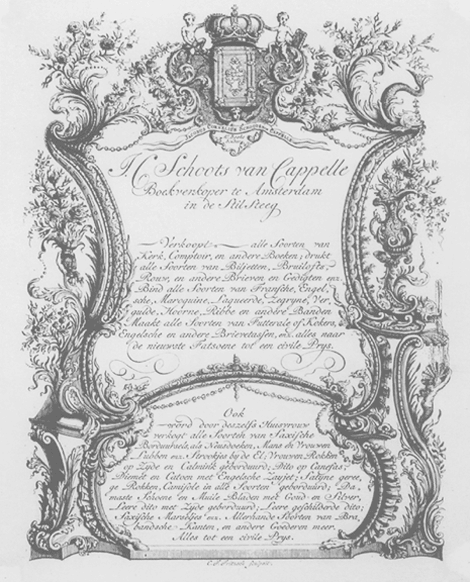 Schoots van Cappelle
Boekverkoper te Amsterdam
in de Stilsteeg
Verkoopt alle Soorten van
Kerk, Comptoir, en andere Boeken; drukt
alle Soorten van Biljetten, Bruilofts,
Rouw, en andere Brieven en Gedigten enz.
Bind alle Soorten van Fransche, Engel,
sche, Maroquine, Laqueerde, Zegryne, Ver,
gulde, Hoorne, Ribbe en andere Banden
Maakt alle Soorten van Futterale of Kokers,
Engelsche en andere Brievetassen, enz. alles naar
de nieuwste Fatsoene tot een civile Prys.
Ook
word door deszelfs Huisvrouw
verkogt alle Soorten van Saxische
als Neusdoeken, Mans en Vrouwen
Lubben enz. Strookjes by de El; Vrouwen Rokken
op Zyde en Calmink geborduurd; Dito op Canefas;
en Catoen met Engelsche Zayet; Satyne
Rokken, in alle Soorten geborduurd; Da,
maste Schoene en Muile Bladen met Goud en Silver,
Leere dito met Zyde geborduurd; Leere geschilderde dito;
Saxische enz. Allerhande Soorten van Bra,
bandsche Kanten, en andere Goederen meer.
Alles tot een civile Prys.